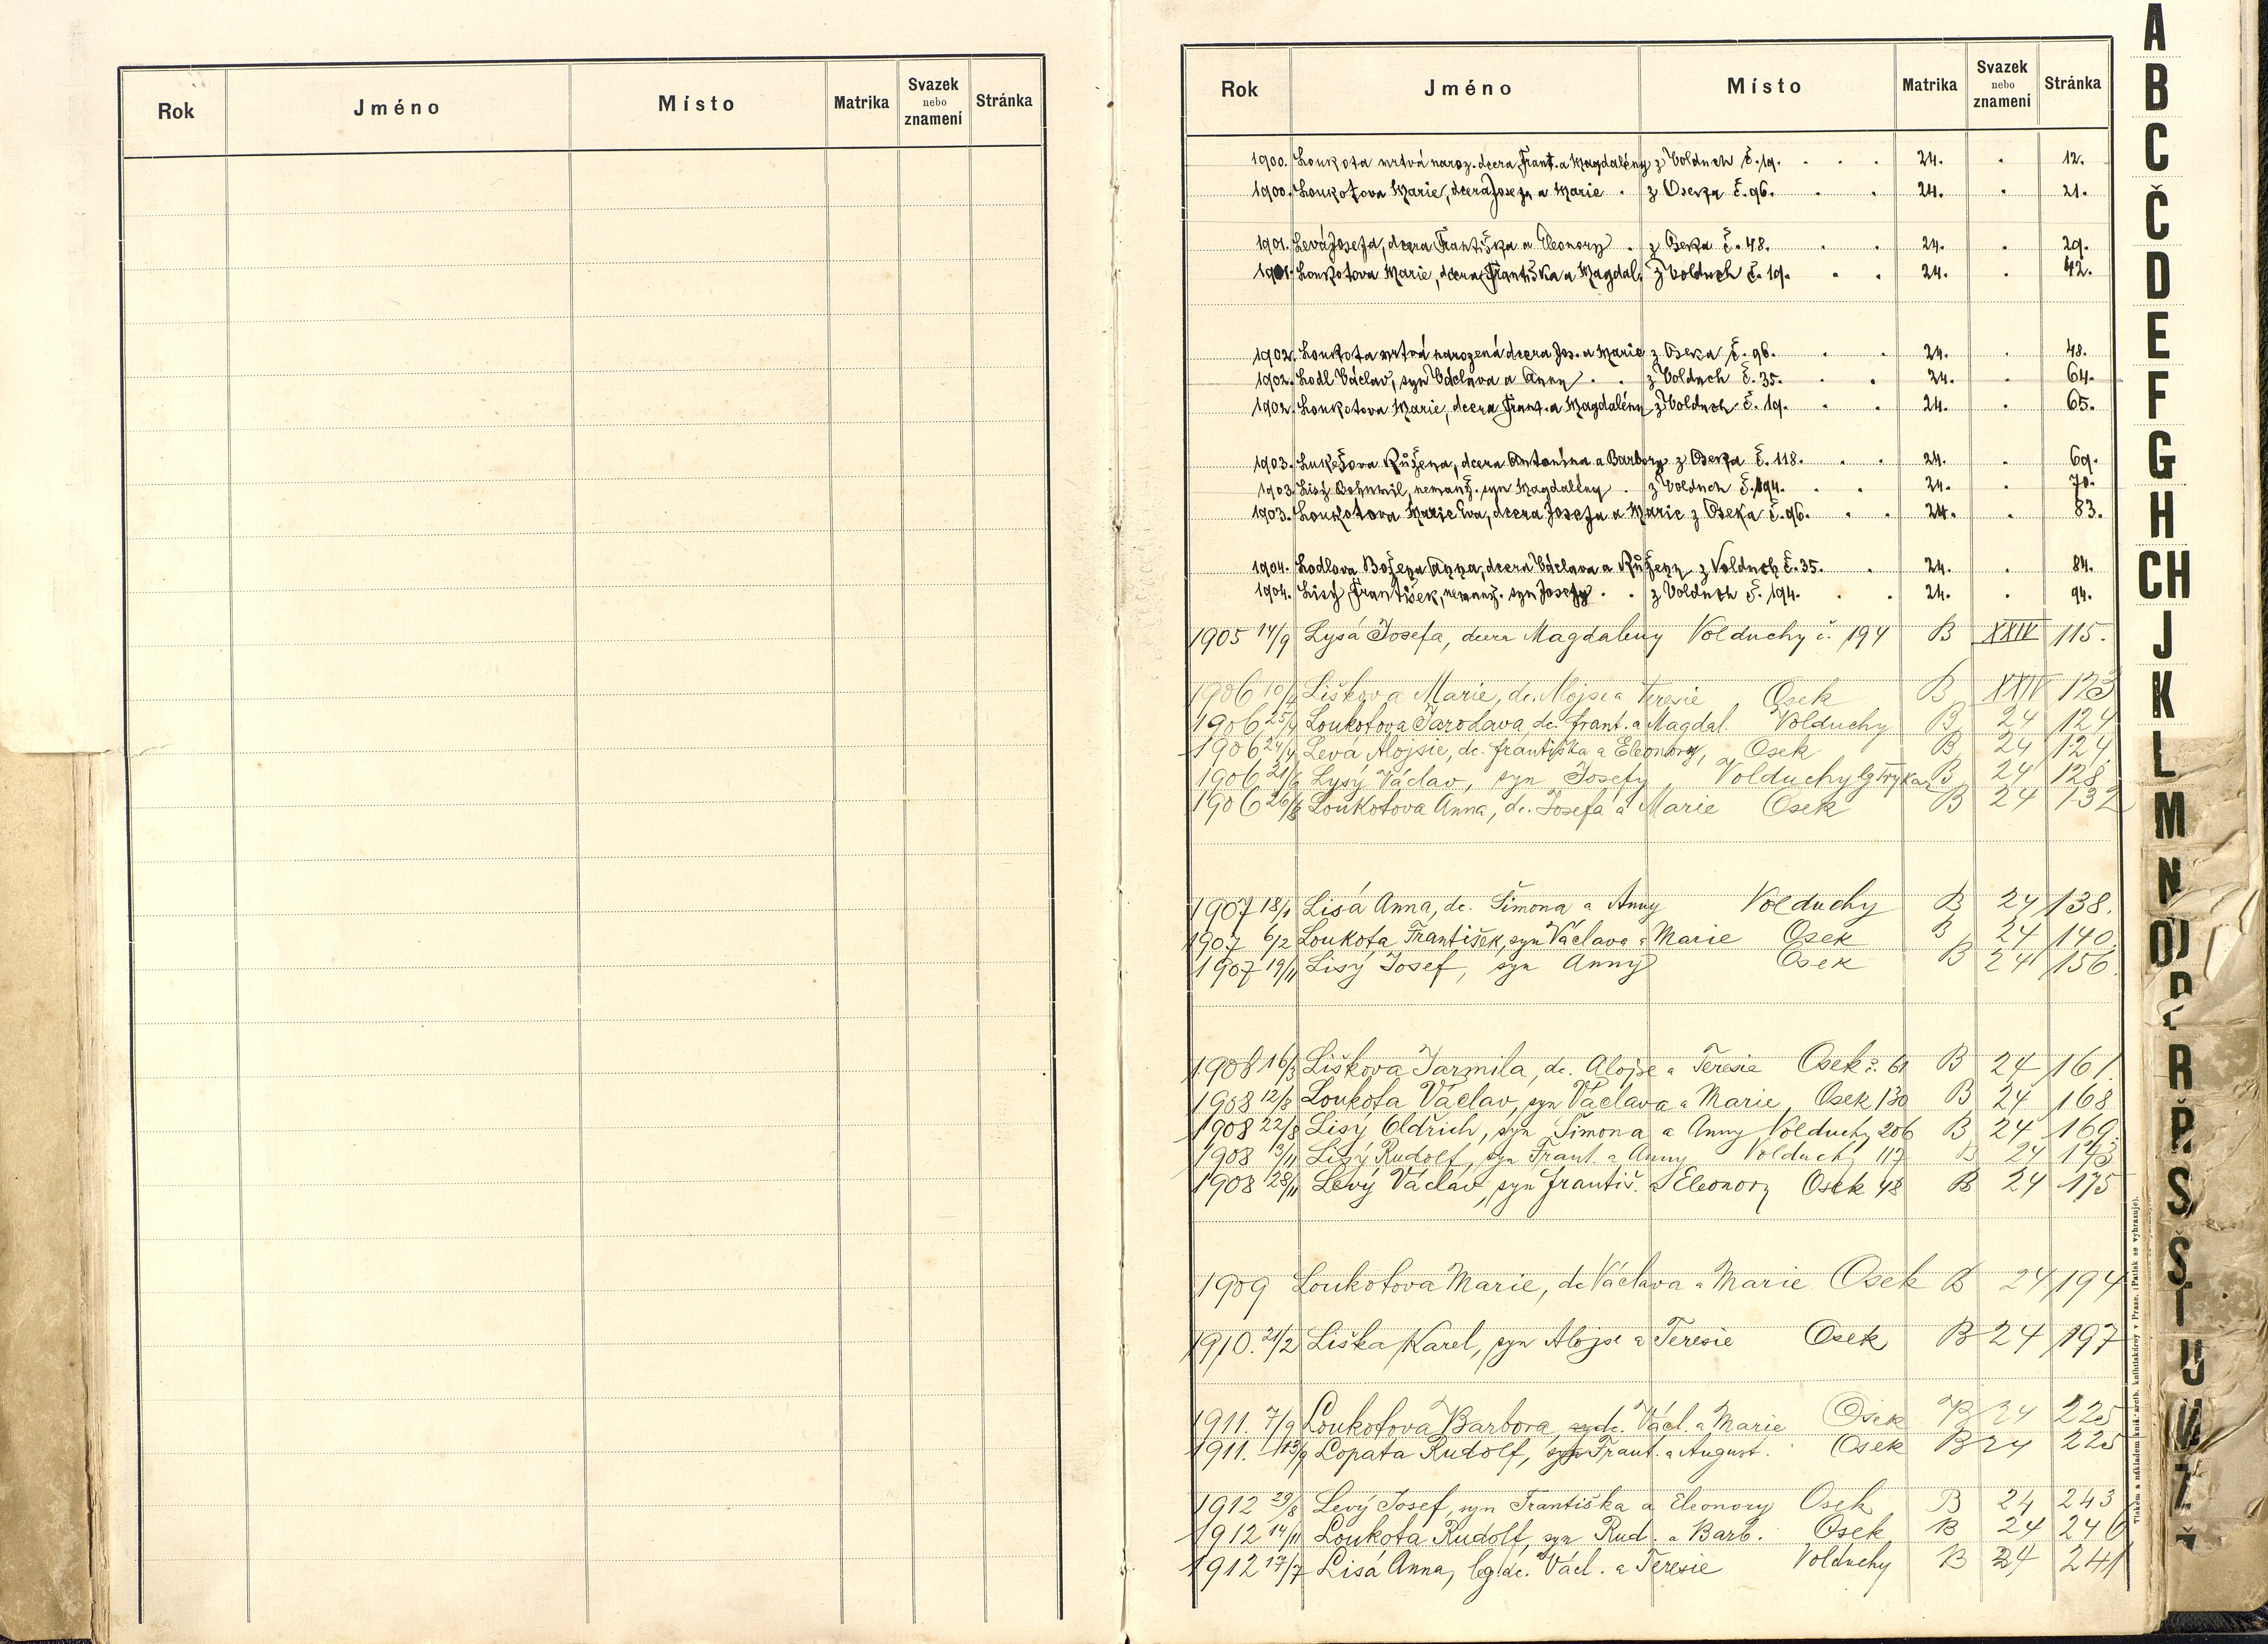 Rok Jméno Místo Matrika Svazek nebo znamení Stránka
Rok Jméno Místo Matrika Svazek nebo znamení Stránka
1900. Loukota mrtvá naroz. dcera Frant. a Magdalény z Volduch č. 19. 24. 12.
1900. Loukotova Marie, dcera Josefa a Marie z Oseka č. 96. 24. 21.
1901. Levá Josefa, dcera Františka a Eleonory z Oseka č. 48. 24. 29.
1901. Loukotova Marie, dcera Františka a Magdal. z Volduch č. 19. 24. 42.
1902. Loukota mrtvá narozená dcera Jos. a Marie z Oseka č. 96. 24. 48.
1902. Lodl Václav, syn Václava a Anny z Volduch č. 35. 24. 64.
1902. Loukotova Marie, dcera Frant. a Magdalény z Volduch č. 19. 24. 65.
1903. Lukešova Růžena, dcera Antonína a Barbory z Oseka č. 118. 24. 69.
1903. Lisý Bohumil, nemanž. syn Magdalény z Volduch č. 194. 24. 70.
1903. Loukotova Marie Eva, dcera Josefa a Marie z Oseka č. 96. 24. 83.
1904. Lodlova Božena Anna, dcera Václava a Růženy z Volduch č. 35. 24. 84.
1904. Lisý František, nemanž. syn Josefy z Volduch č. 194. 24. 94.
1905 14/9 Lysá Josefa, dcera Magdaleny Volduchy č. 194 B XXIV 115.
1906 10/4 Liškova Marie, dc. Alojse a Teresie Osek B XXIV 123
1906 25/4 Loukotova Jaroslava, dc. Frant. a Magdal. Volduchy B 24 124
1906 24/4 Levá Alojsie, dc. Františka a Eleonory, Osek B 24 124
1906 21/6 Lysý Václav, syn Josefy, Volduchy B 24 128
1906 26/8 Loukotova Anna, dc. Josefa a Marie Osek B 24 132
1907 18/1 Lisá Anna, dc. Šimona a Anny Volduchy B 24 138.
1907 6/2 Loukota František, syn Václava a Marie Osek B 24 140
1907 19/11 Lisý Josef, syn Anny Osek B 24 156
1908 16/3 Liškova Jarmila, dc. Alojse a Teresie Osek č. 61 B 24 161
1908 12/8 Loukota Václav, syn Václava a Marie Osek 130 B 24 168
1908 22/8 Lisý Oldřich, syn Šimona a Anny Volduchy 206 B 24 169
1908 13/11 Lisý Rudolf, syn Frant. a Anny Volduchy 117 B 24 173
1908 28/11 Levý Václav, syn Františ. a Eleonory Osek 48 B 24 175
1909 Loukotova Marie, dc Václava a Marie Osek B 24 194
1910. 21/2 Liška Karel, syn Alojse a Teresie Osek B 24 197
1911. 7/9 Loukotova Barbora, dc. Václ. a Marie Osek B 24 225
1911. 13/9 Lopata Rudolf, syn Frant. a August. Osek B 24 225
1912 29/8 Levý Josef, syn Františka a Eleonory Osek B 24 243
1912 14/11 Loukota Rudolf, syn Rud. a Barb. Osek B 24 246
1912 17/7 Lisá Anna, leg. dc. Václ. a Teresie Volduchy B 24 241
A
B
C
Č
D
E
F
G
H
CH
J
K
L
M
N
O
P
R
Ř
S
Š
T
U
V
Z
Ž
Tiskem a nákladem kníž. arcib. knihtiskárny v Praze. (Patisk se vyhrazuje).